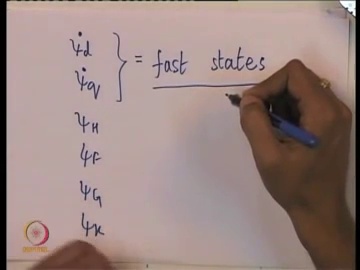 ψ̇d
ψ̇q } = fast states
ψH
ψF
ψG
ψK